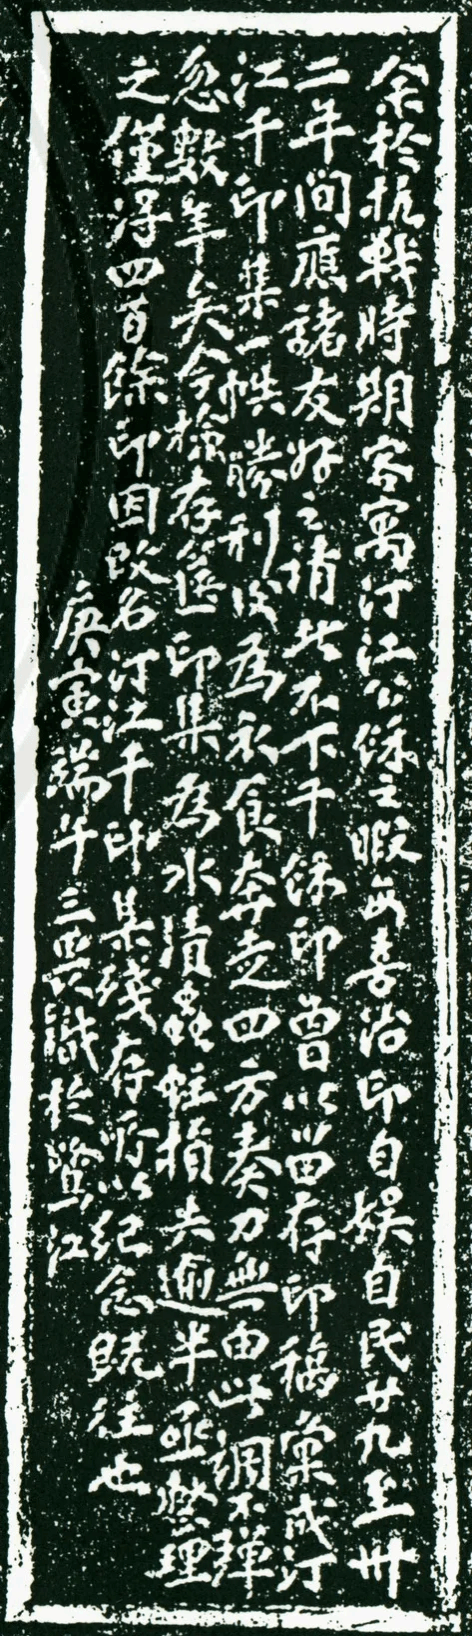 余於抗戰時期客寓汀江公餘之暇每喜治印自娛自民廿九至卅
二年間應諸友好之請比不下千餘印曾以留存印稿彙成汀
江千印集一帙勝利後為衣食奔走四方奏刀無由此調不彈
忽數年矣今檢存篋印集為水漬蟲蛀損失逾半亟整理
之僅得四百餘印因改名汀江千印集殘存所以紀念既往也
庚寅端午三畏識於鷺江